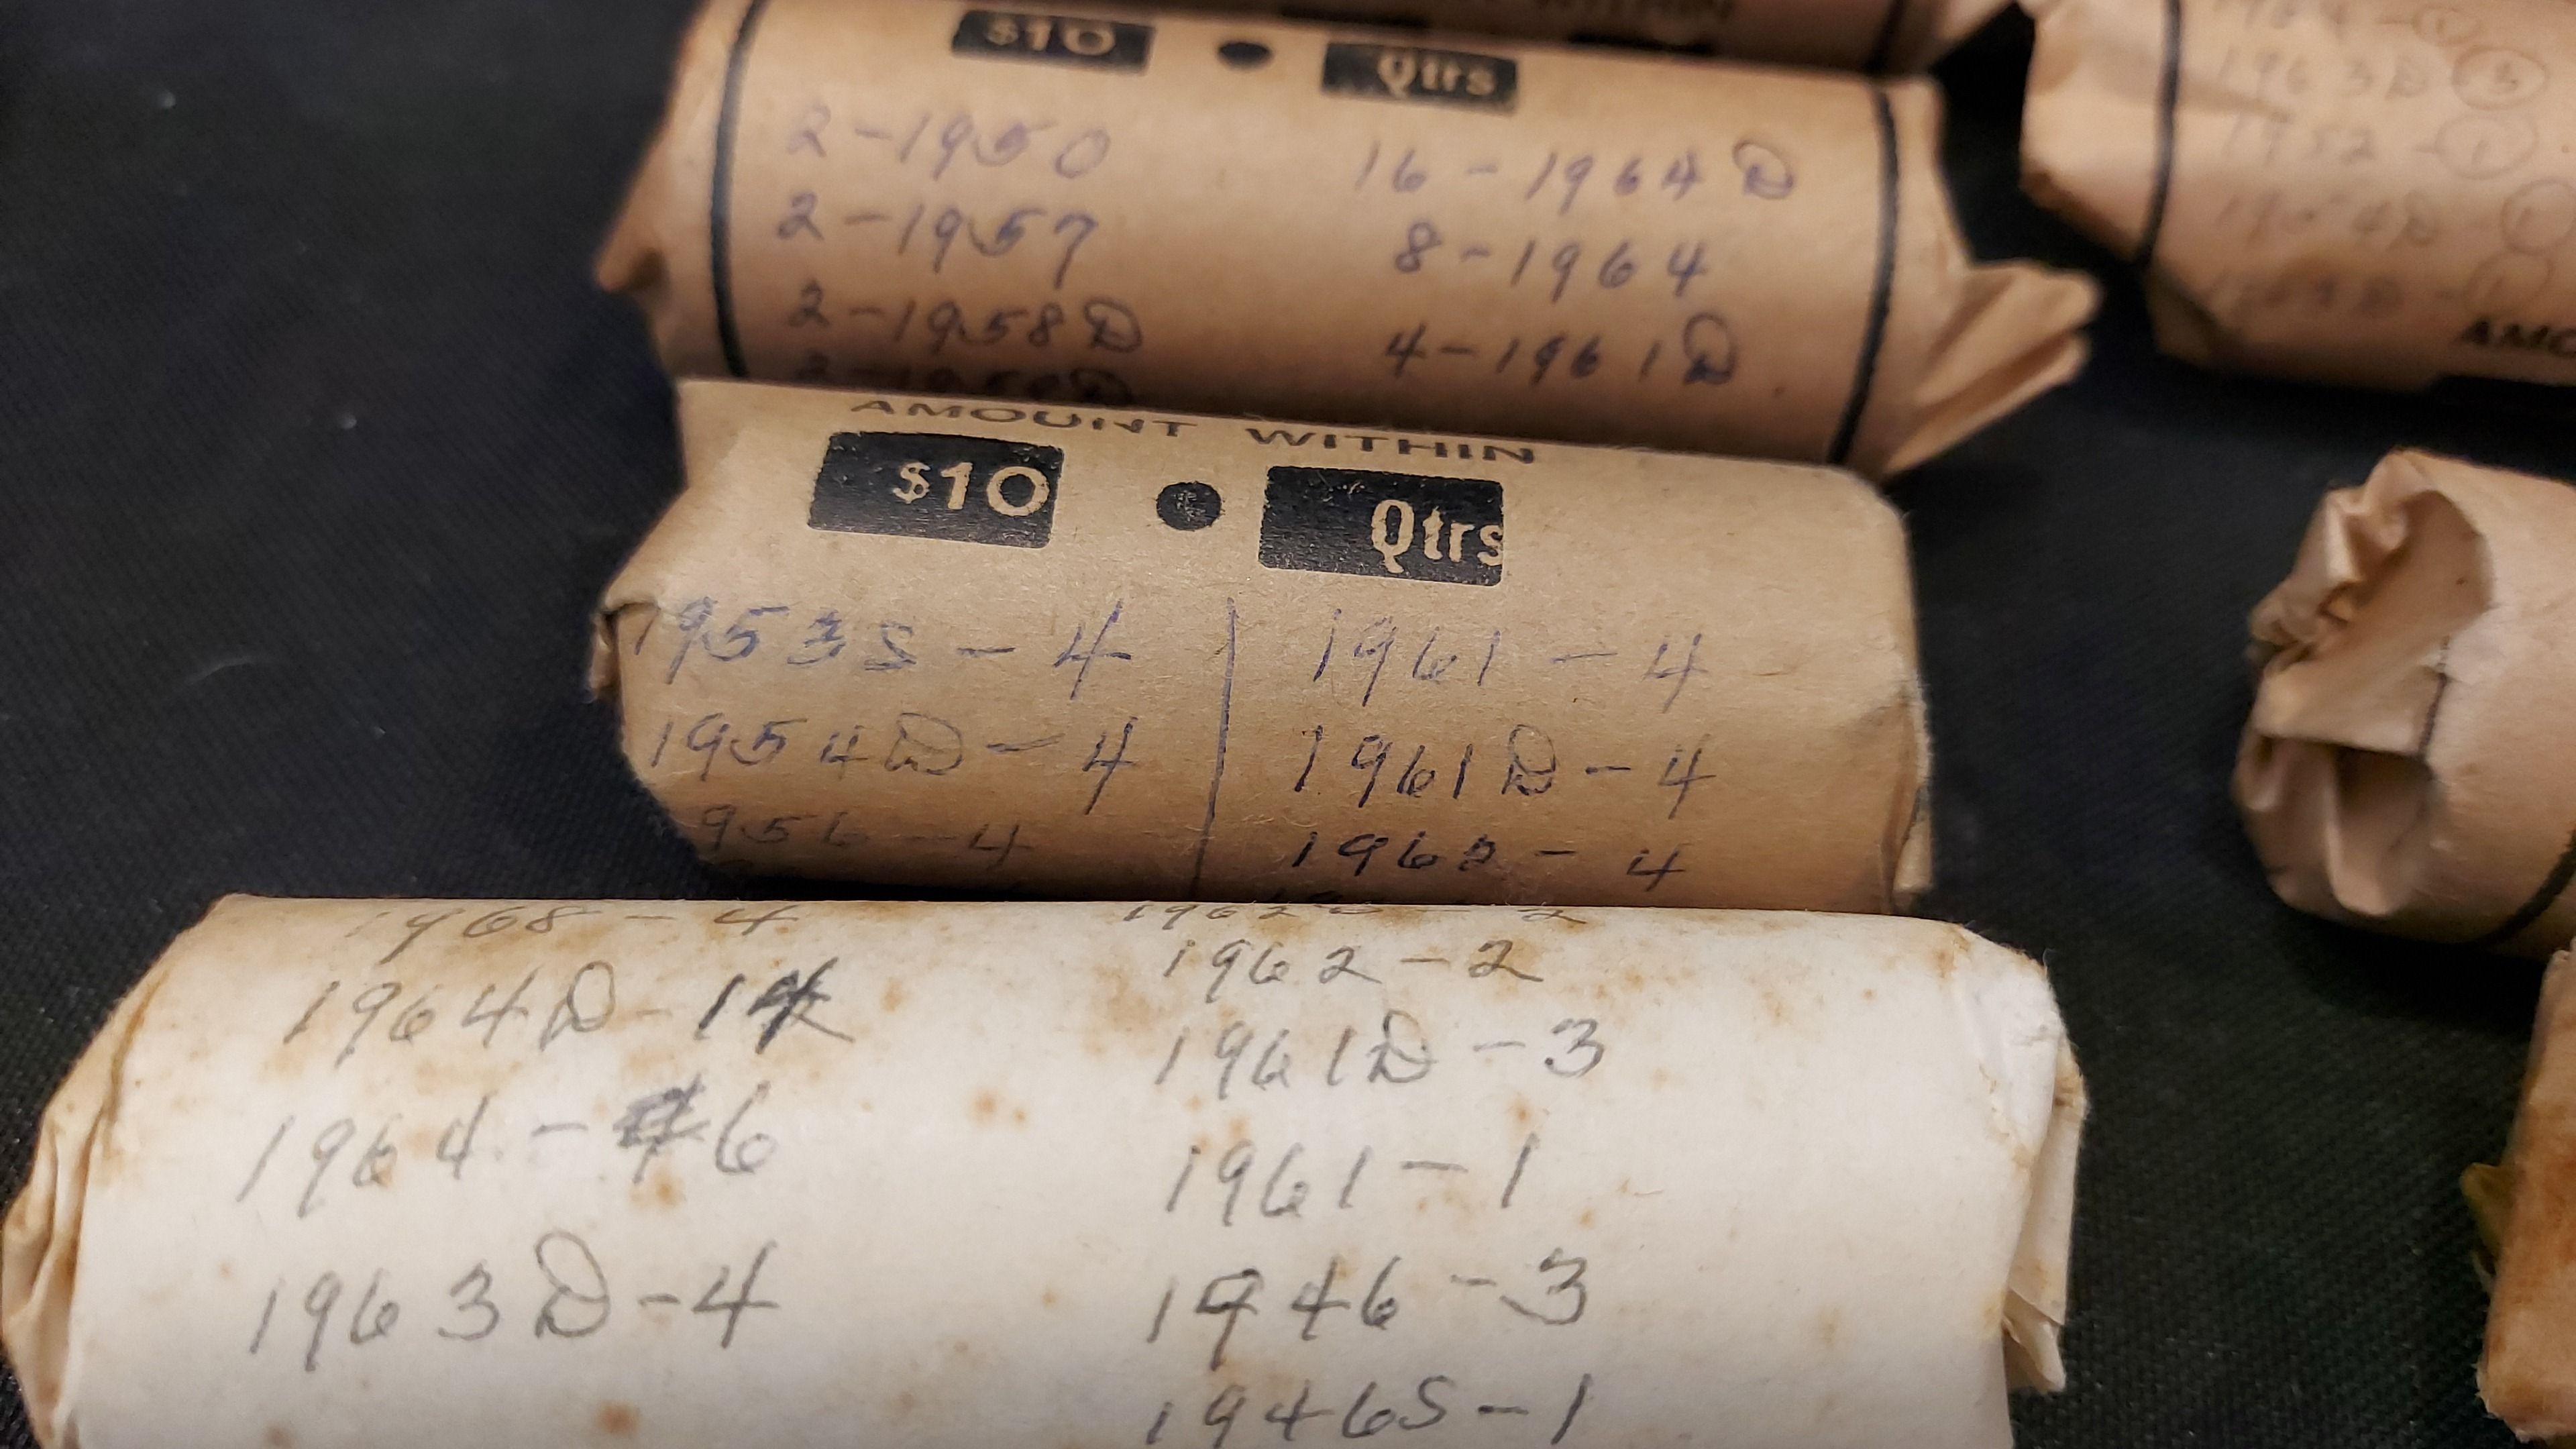 $10 • Qtrs
2-1950
2-1957
2-1958D
16-1964D
8-1964
4-1961D
1963D-3
1952-1
AMOUNT WITHIN
$10 • Qtrs
1953S-4
1954D-4
956-4
1961-4
1961D-4
1962-4
1968-4
1964D-14
1964-6
1963D-4
1962-2
1961D-3
1961-1
1946-3
1946S-1